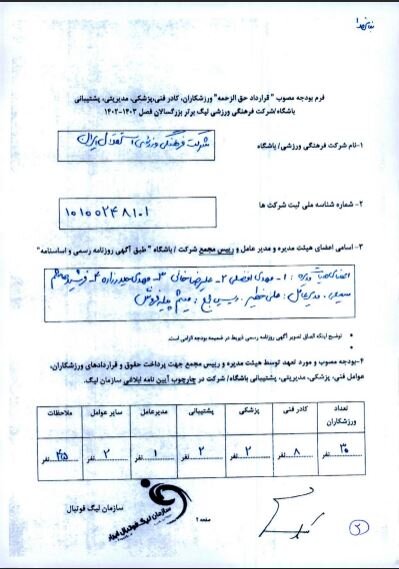 فرم بودجه مصوب "قرارداد حق الزحمه" ورزشکاران، کادر فنی، پزشکی، مدیریتی، پشتیبانی
باشگاه/شرکت فرهنگی ورزشی لیگ برتر بزرگسالان فصل ۱۴۰۳-۱۴۰۲
۱-نام شرکت فرهنگی ورزشی/ باشگاه
شرکت فرهنگی ورزشی استقلال ایران
۲- شماره شناسه ملی ثبت شرکت ها
۱۰۱۰۰۲۴۸۱۰۱
۳- اسامی اعضای هیئت مدیره و مدیر عامل و رییس مجمع شرکت / باشگاه " طبق آگهی روزنامه رسمی و اساسنامه"
اعضای هیات مدیره : ۱- مهدی افضلی ۲- علیرضا ۳- مهدی ۴- فرشید
مدیرعامل : علی خطیر .
توضیح اینکه الصاق تصویر آگهی روزنامه رسمی ذیربط در ضمیمه بودجه الزامی است.
۴-بودجه مصوب و مورد تعهد توسط هیئت مدیره و رییس مجمع جهت پرداخت حقوق و قراردادهای ورزشکاران،
عوامل فنی، پزشکی، مدیریتی، پشتیبانی باشگاه/ شرکت در چارچوب آیین نامه ابلاغی سازمان لیگ.
تعداد ورزشکاران کادر فنی پزشکی پشتیبانی مدیرعامل سایر عوامل ملاحظات
۳۰ نفر ۸ نفر ۲ نفر ۲ نفر ۱ نفر ۲ نفر ۴۵ نفر
سازمان لیگ فوتبال
سازمان لیگ فوتبال ایران
صفحه ۱